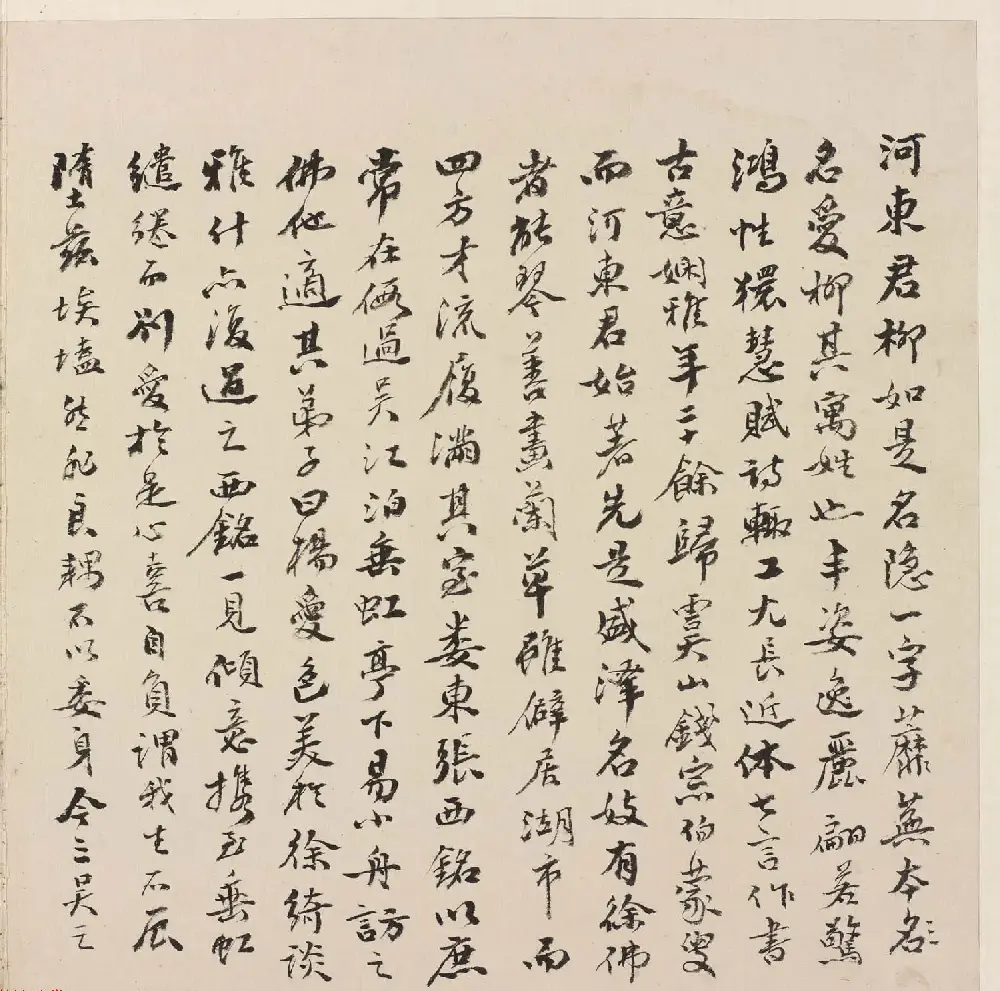 河東君柳如是名隐一字蘼蕪本名〻
名愛柳其寓姓也丰姿逸麗翩若驚
鴻性獧慧賦詩輒工尤長近体七言作書
古意嫻雅年二十餘歸虞山錢宗伯蒙叟
而河東君始著先是盛澤名妓有徐佛
者能琴善畫蘭草雖僻居湖市而
四方才流履滿其室婁東張西銘以庶
常在假過吴江泊垂虹亭下易小舟訪之
佛他適其弟子曰楊愛色美於徐綺談
雅什亦復過之西銘一見傾意携至垂虹
繾綣而別愛於是心喜自負謂我生不辰
墮茲埃壒然非良耦不以委身今三吴之